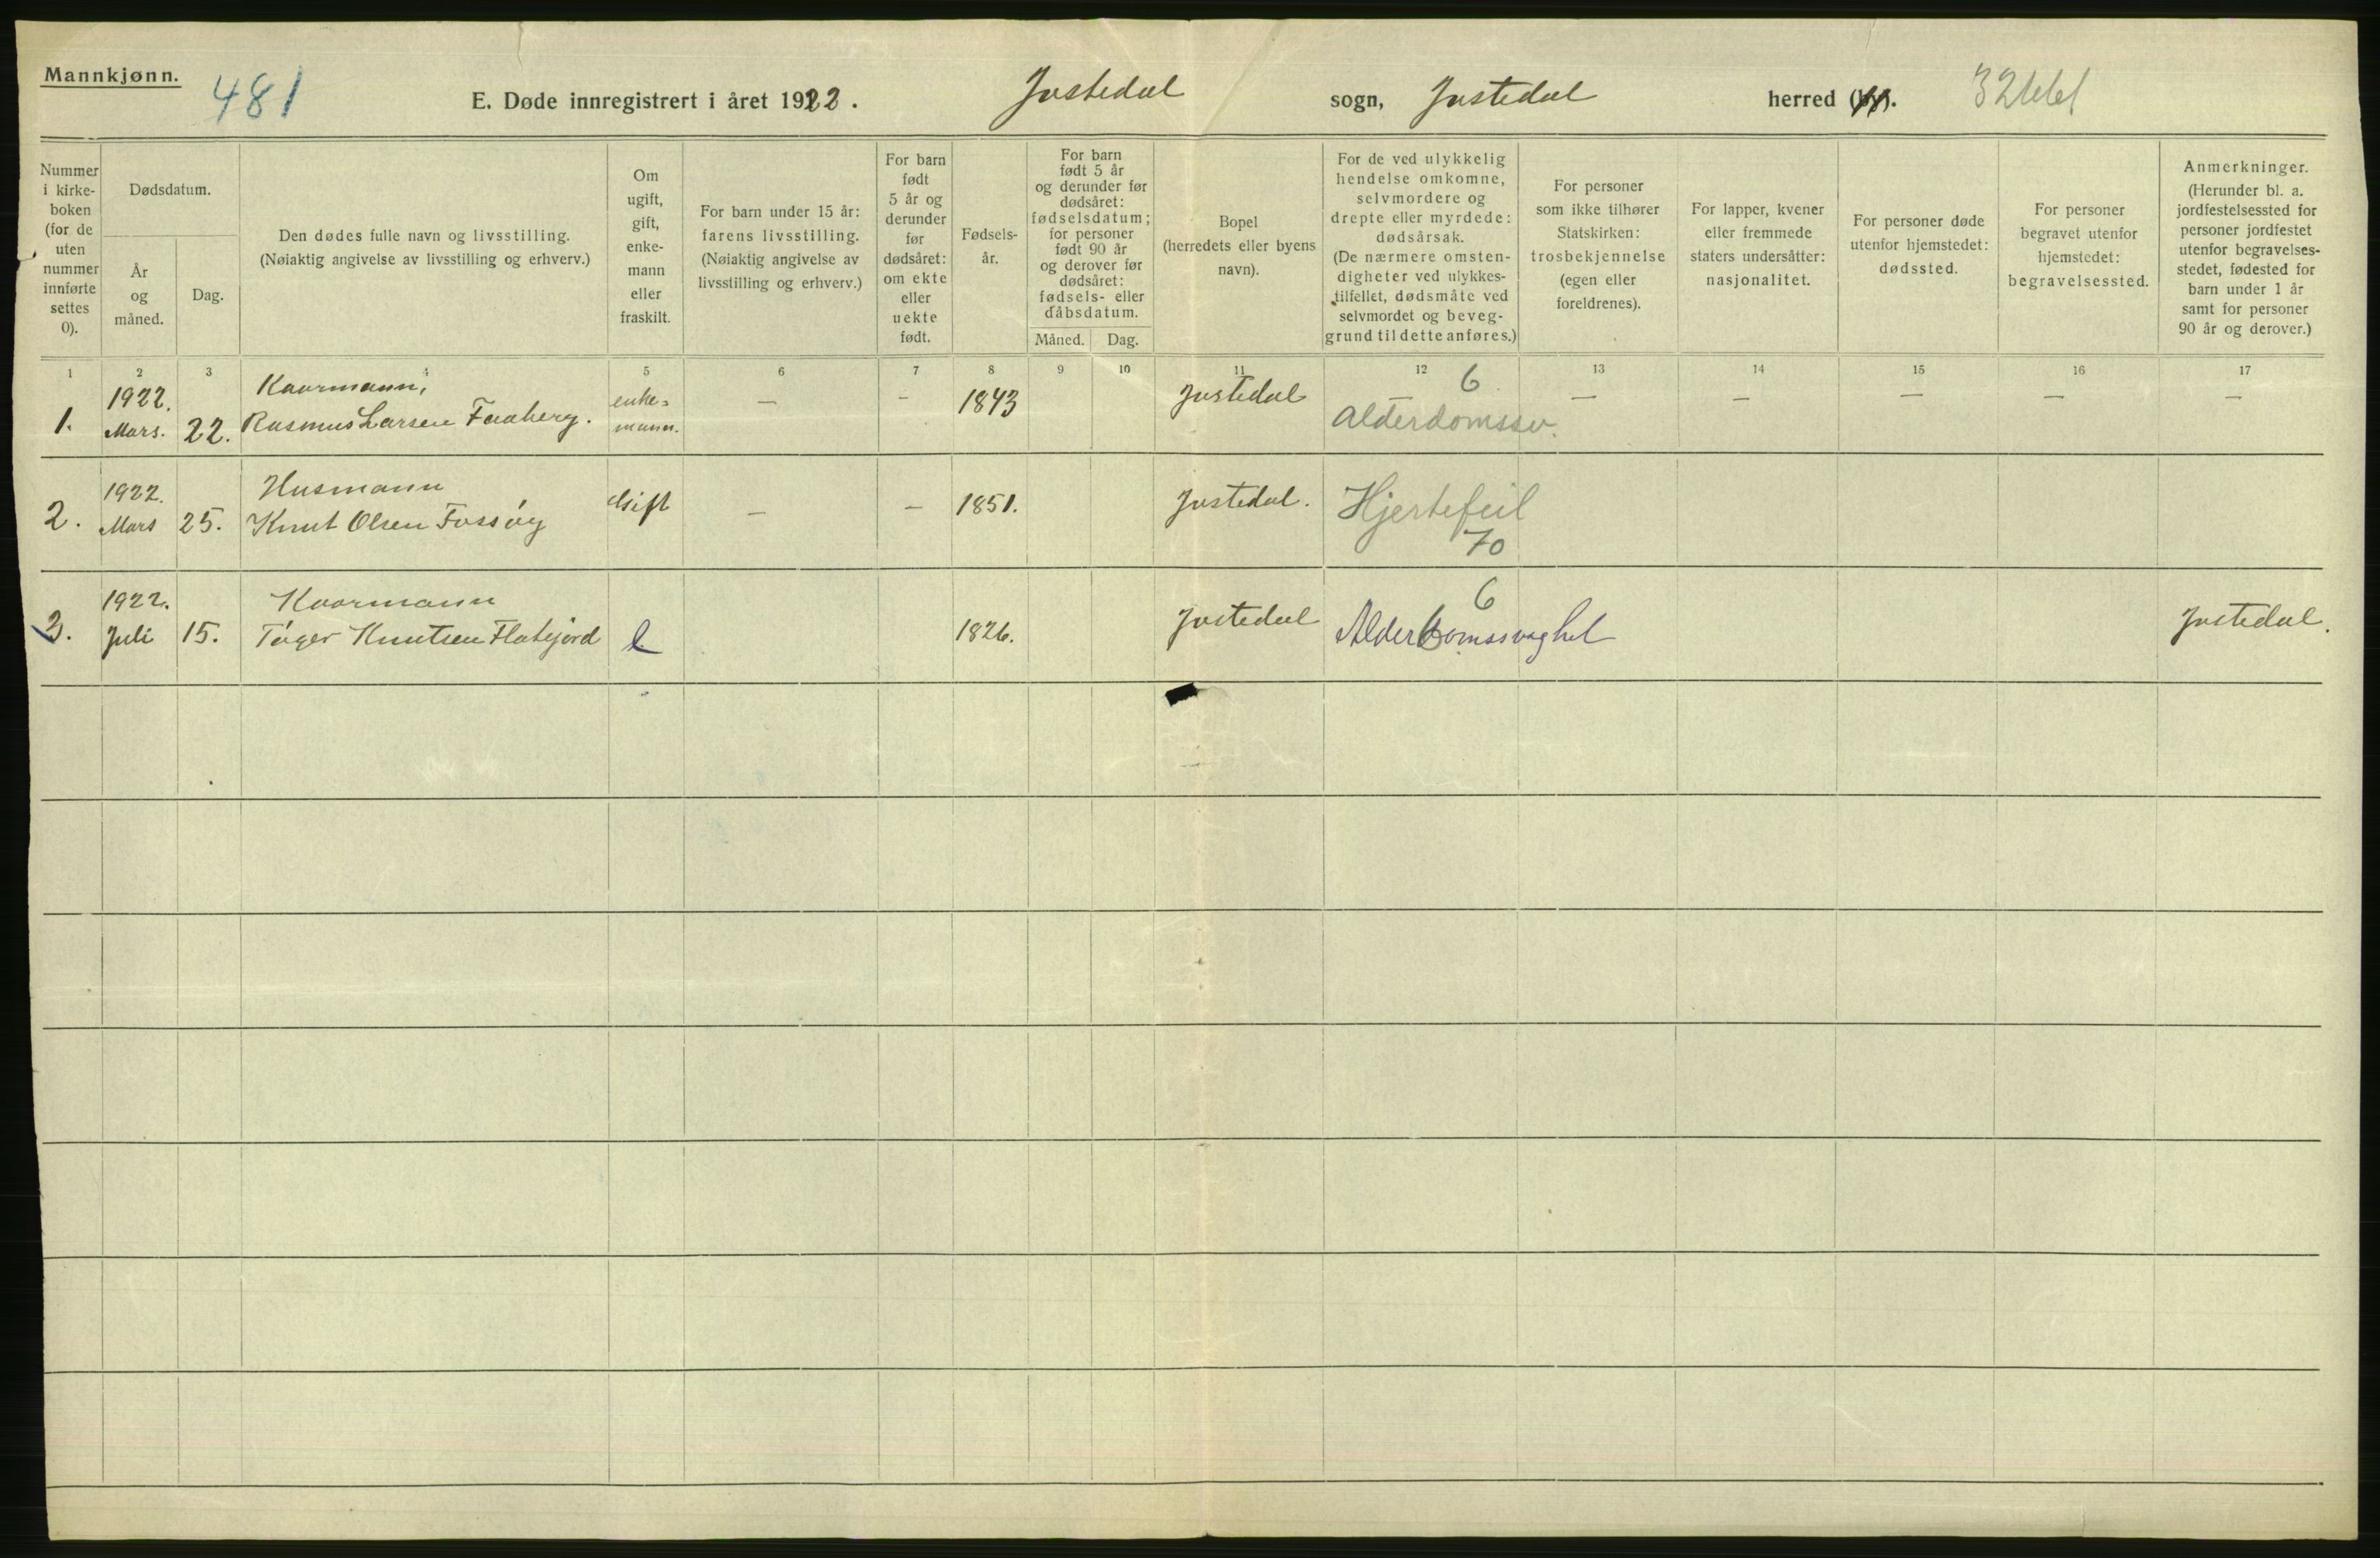 Mannkjønn.
481
E. Døde innregistrert i året 1922.
Jostedal sogn, Jostedal herred (by).
Nummer i kirke-boken (for de uten nummer innførte settes 0).
Dødsdatum.
År og måned.
Dag.
Den dødes fulle navn og livsstilling.
(Nøiaktig angivelse av livsstilling og erhverv.)
Om ugift, gift, enke-mann eller fraskilt.
For barn under 15 år: farens livsstilling.
(Nøiaktig angivelse av livsstilling og erhverv.)
For barn født 5 år og derunder før dødsåret: om ekte eller uekte født.
Fødsels-år.
For barn født 5 år og derunder før dødsåret: fødselsdatum; for personer født 90 år og derover før dødsåret: fødsels- eller dåbsdatum.
Måned. Dag.
Bopel (herredets eller byens navn).
For de ved ulykkelig hendelse omkomne, selvmordere og drepte eller myrdede: dødsårsak.
(De nærmere omsten-digheter ved ulykkes-tilfellet, dødsmåte ved selvmordet og beveg-grund til dette anføres.)
For personer som ikke tilhører Statskirken: trosbekjennelse (egen eller foreldrenes).
For lapper, kvener eller fremmede staters undersåtter: nasjonalitet.
For personer døde utenfor hjemstedet: dødssted.
For personer begravet utenfor hjemstedet: begravelsessted.
Anmerkninger.
(Herunder bl. a. jordfestelsessted for personer jordfestet utenfor begravelses-stedet, fødested for barn under 1 år samt for personer 90 år og derover.)
1 2 3 4 5 6 7 8 9 10 11 12 13 14 15 16 17
1. 1922. Mars. 22. Kaarmann, Rasmus Larsen Faaberg. enke-mann. — — 1843 Jostedal — 6 Alderdomssv. — — — — —
2. 1922. Mars 25. Husmann Knut Olsen Fossøy Gift — — 1851. Jostedal. Hjertefeil 70
3. 1922. Juli 15. Kaarmann Tøger Knutsen Flatejord e 1826. Jostedal 6 Alderdomssvaghet Jostedal.